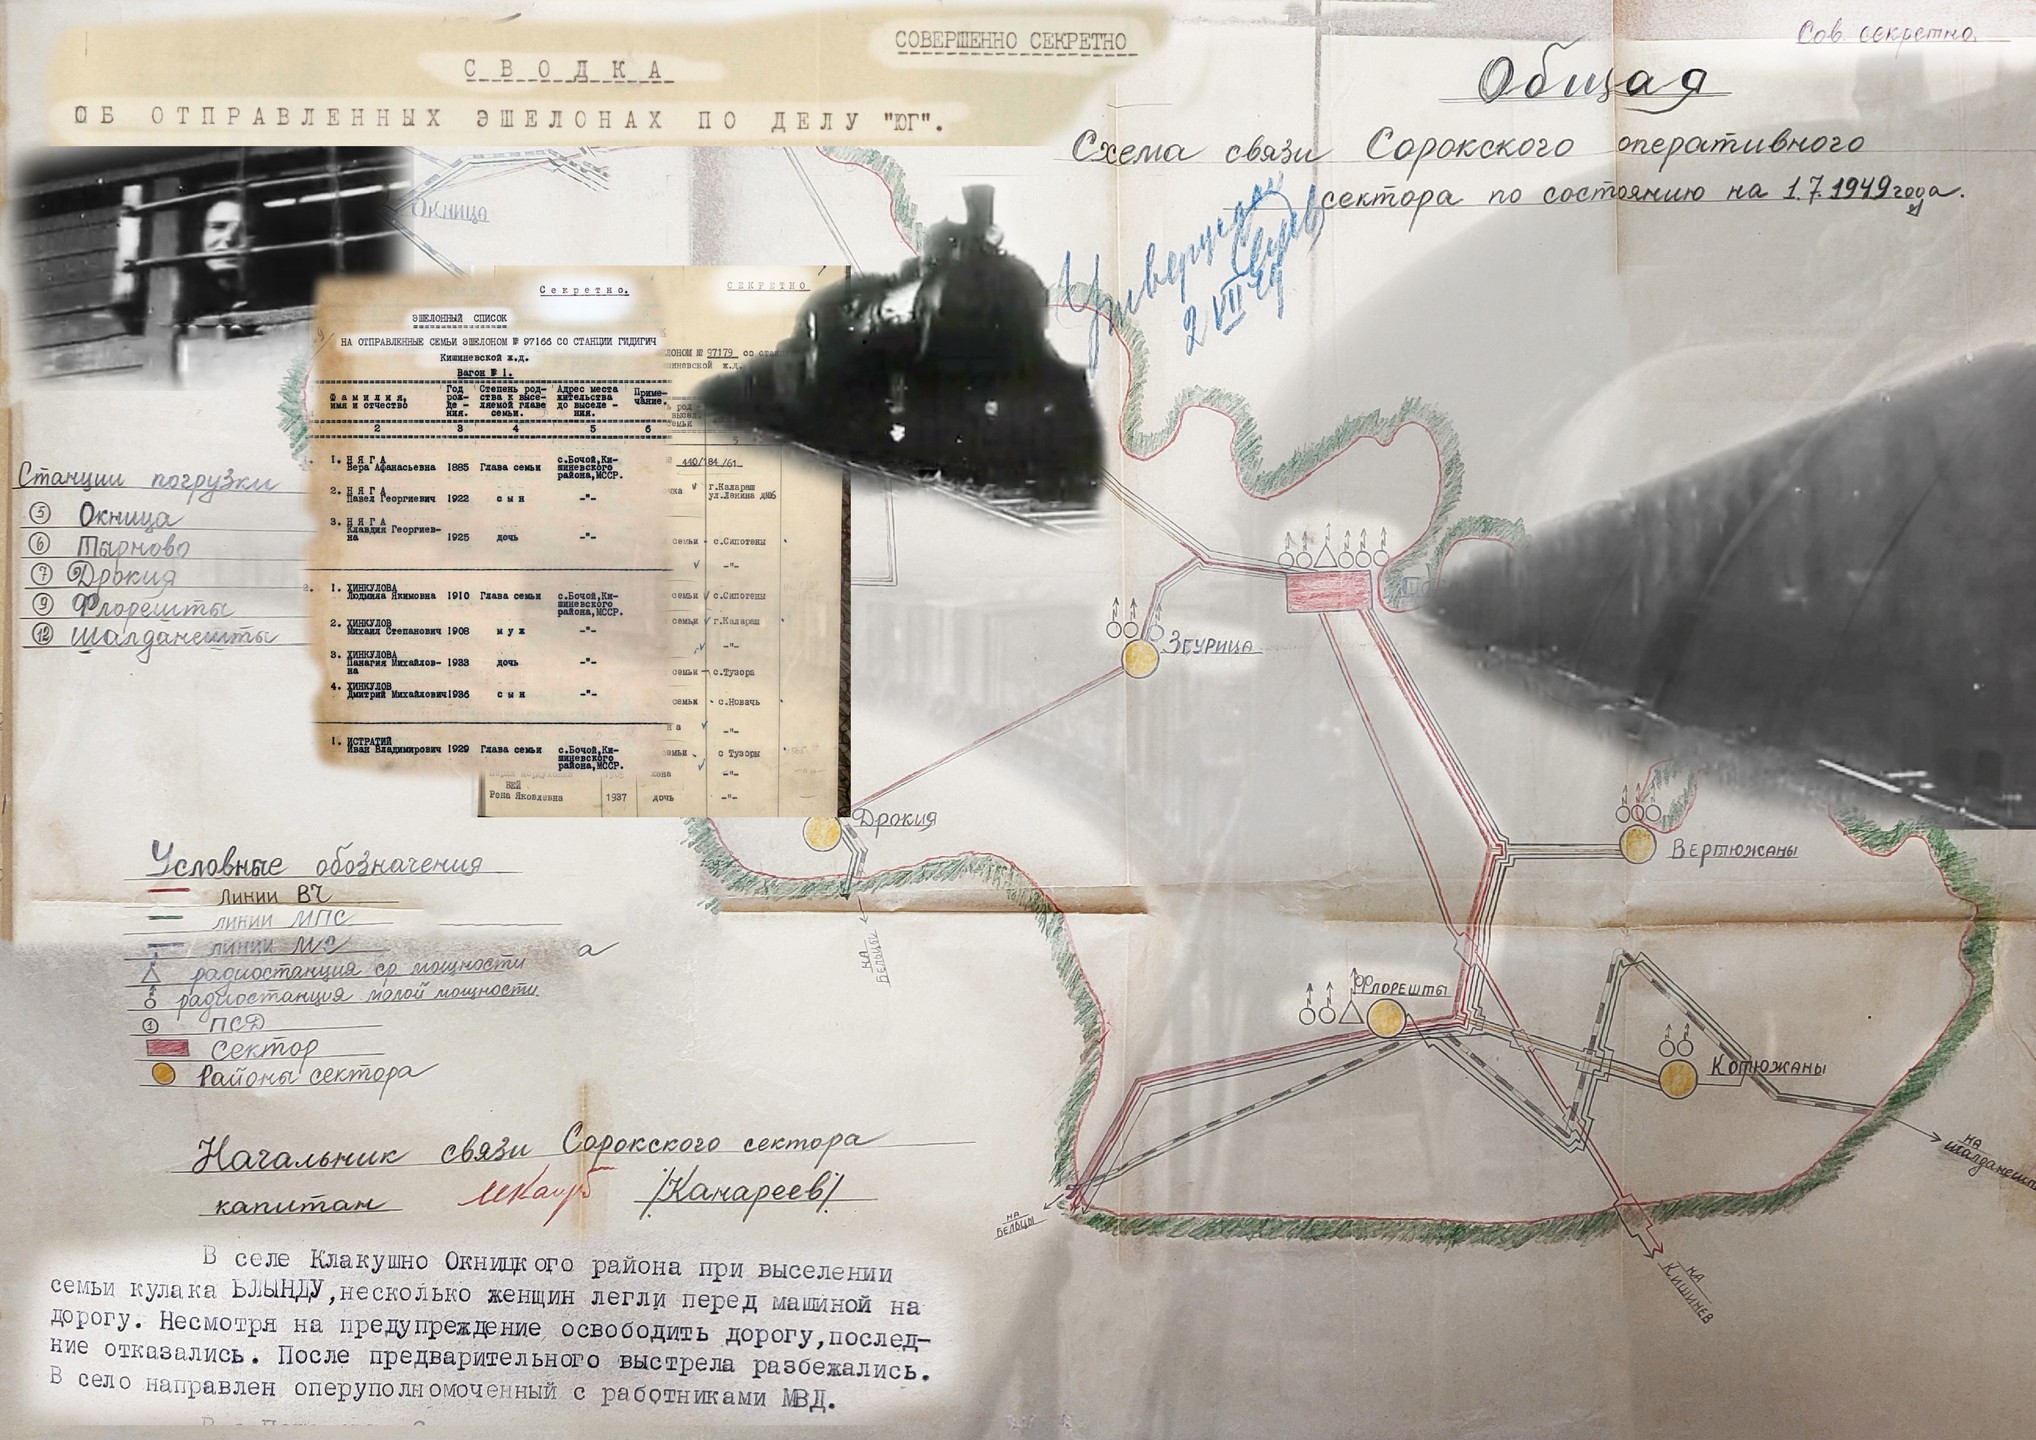 СОВЕРШЕННО СЕКРЕТНО
СВОДКА
ОБ ОТПРАВЛЕННЫХ ЭШЕЛОНАХ ПО ДЕЛУ "ЮГ".
Сов. секретно
Общая
Схема связи Сорокского оперативного
сектора по состоянию на 1.7.1949 года.
Утверждаю
2 VII 49
Окница
Секретно.
ЭШЕЛОННЫЙ СПИСОК
НА ОТПРАВЛЕННЫЕ СЕМЬИ ЭШЕЛОНОМ № 97166 СО СТАНЦИИ ГИДИГИЧ
Кишиневской ж.д.
Вагон № 1.
Фамилия, имя и отчество
Год рож- де- ния.
Степень род- ства к высе- ляемой главе семьи.
Адрес места жительства до выселе- ния.
Приме- чание.
2 3 4 5 6
1. НЯГА
Вера Афанасьевна 1885 Глава семьи с.Бочой,Ки-
шиневского
района,МССР.
2. НЯГА
Павел Георгиевич 1922 сын -"-
3. НЯГА
Клавдия Георгиев-
на 1925 дочь -"-
2. 1. ХИНКУЛОВА
Людмила Якимовна 1910 Глава семьи с.Бочой,Ки-
шиневского
района,МССР.
2. ХИНКУЛОВ
Михаил Степанович 1908 муж -"-
3. ХИНКУЛОВА
Панагия Михайлов-
на 1933 дочь -"-
4. ХИНКУЛОВ
Дмитрий Михайлович 1936 сын -"-
1. ИСТРАТИЙ
Иван Владимирович 1929 Глава семьи с.Бочой,Ки-
шиневского
района,МССР.
СЕКРЕТНО
ЛОНОМ № 97179 со
шиневской ж.д.
5
440/184/61
г.Калараш
ул.Ленина
семьи с.Сипотены
-"-
семьи с.Сипотены
семьи г.Калараш
-"-
семьи с.Тузора
семьи с.Новачь
-"-
с Тузоры
жена -"-
ВЕЙ
Рона Яковлевна 1937 дочь -"-
Станции погрузки
5 Окница
6 Тырново
7 Дрокия
9 Флорешты
12 Шалданешты
Згурица
Дрокия
на Бельцы
Вертюжаны
Флорешты
Котюжаны
на
на Бельцы
на Кишинев
Условные обозначения
линии ВЧ
линии МПС
линии МС
радиостанция ср мощности
радиостанция малой мощности
1 ПСД
Сектор
Районы сектора
Начальник связи Сорокского сектора
капитан /Канареев/
В селе Клакушно Окницкого района при выселении
семьи кулака БЛЫНДУ,несколько женщин легли перед машиной на
дорогу. Несмотря на предупреждение освободить дорогу,послед-
ние отказались. После предварительного выстрела разбежались.
В село направлен оперуполномоченный с работниками МВД.